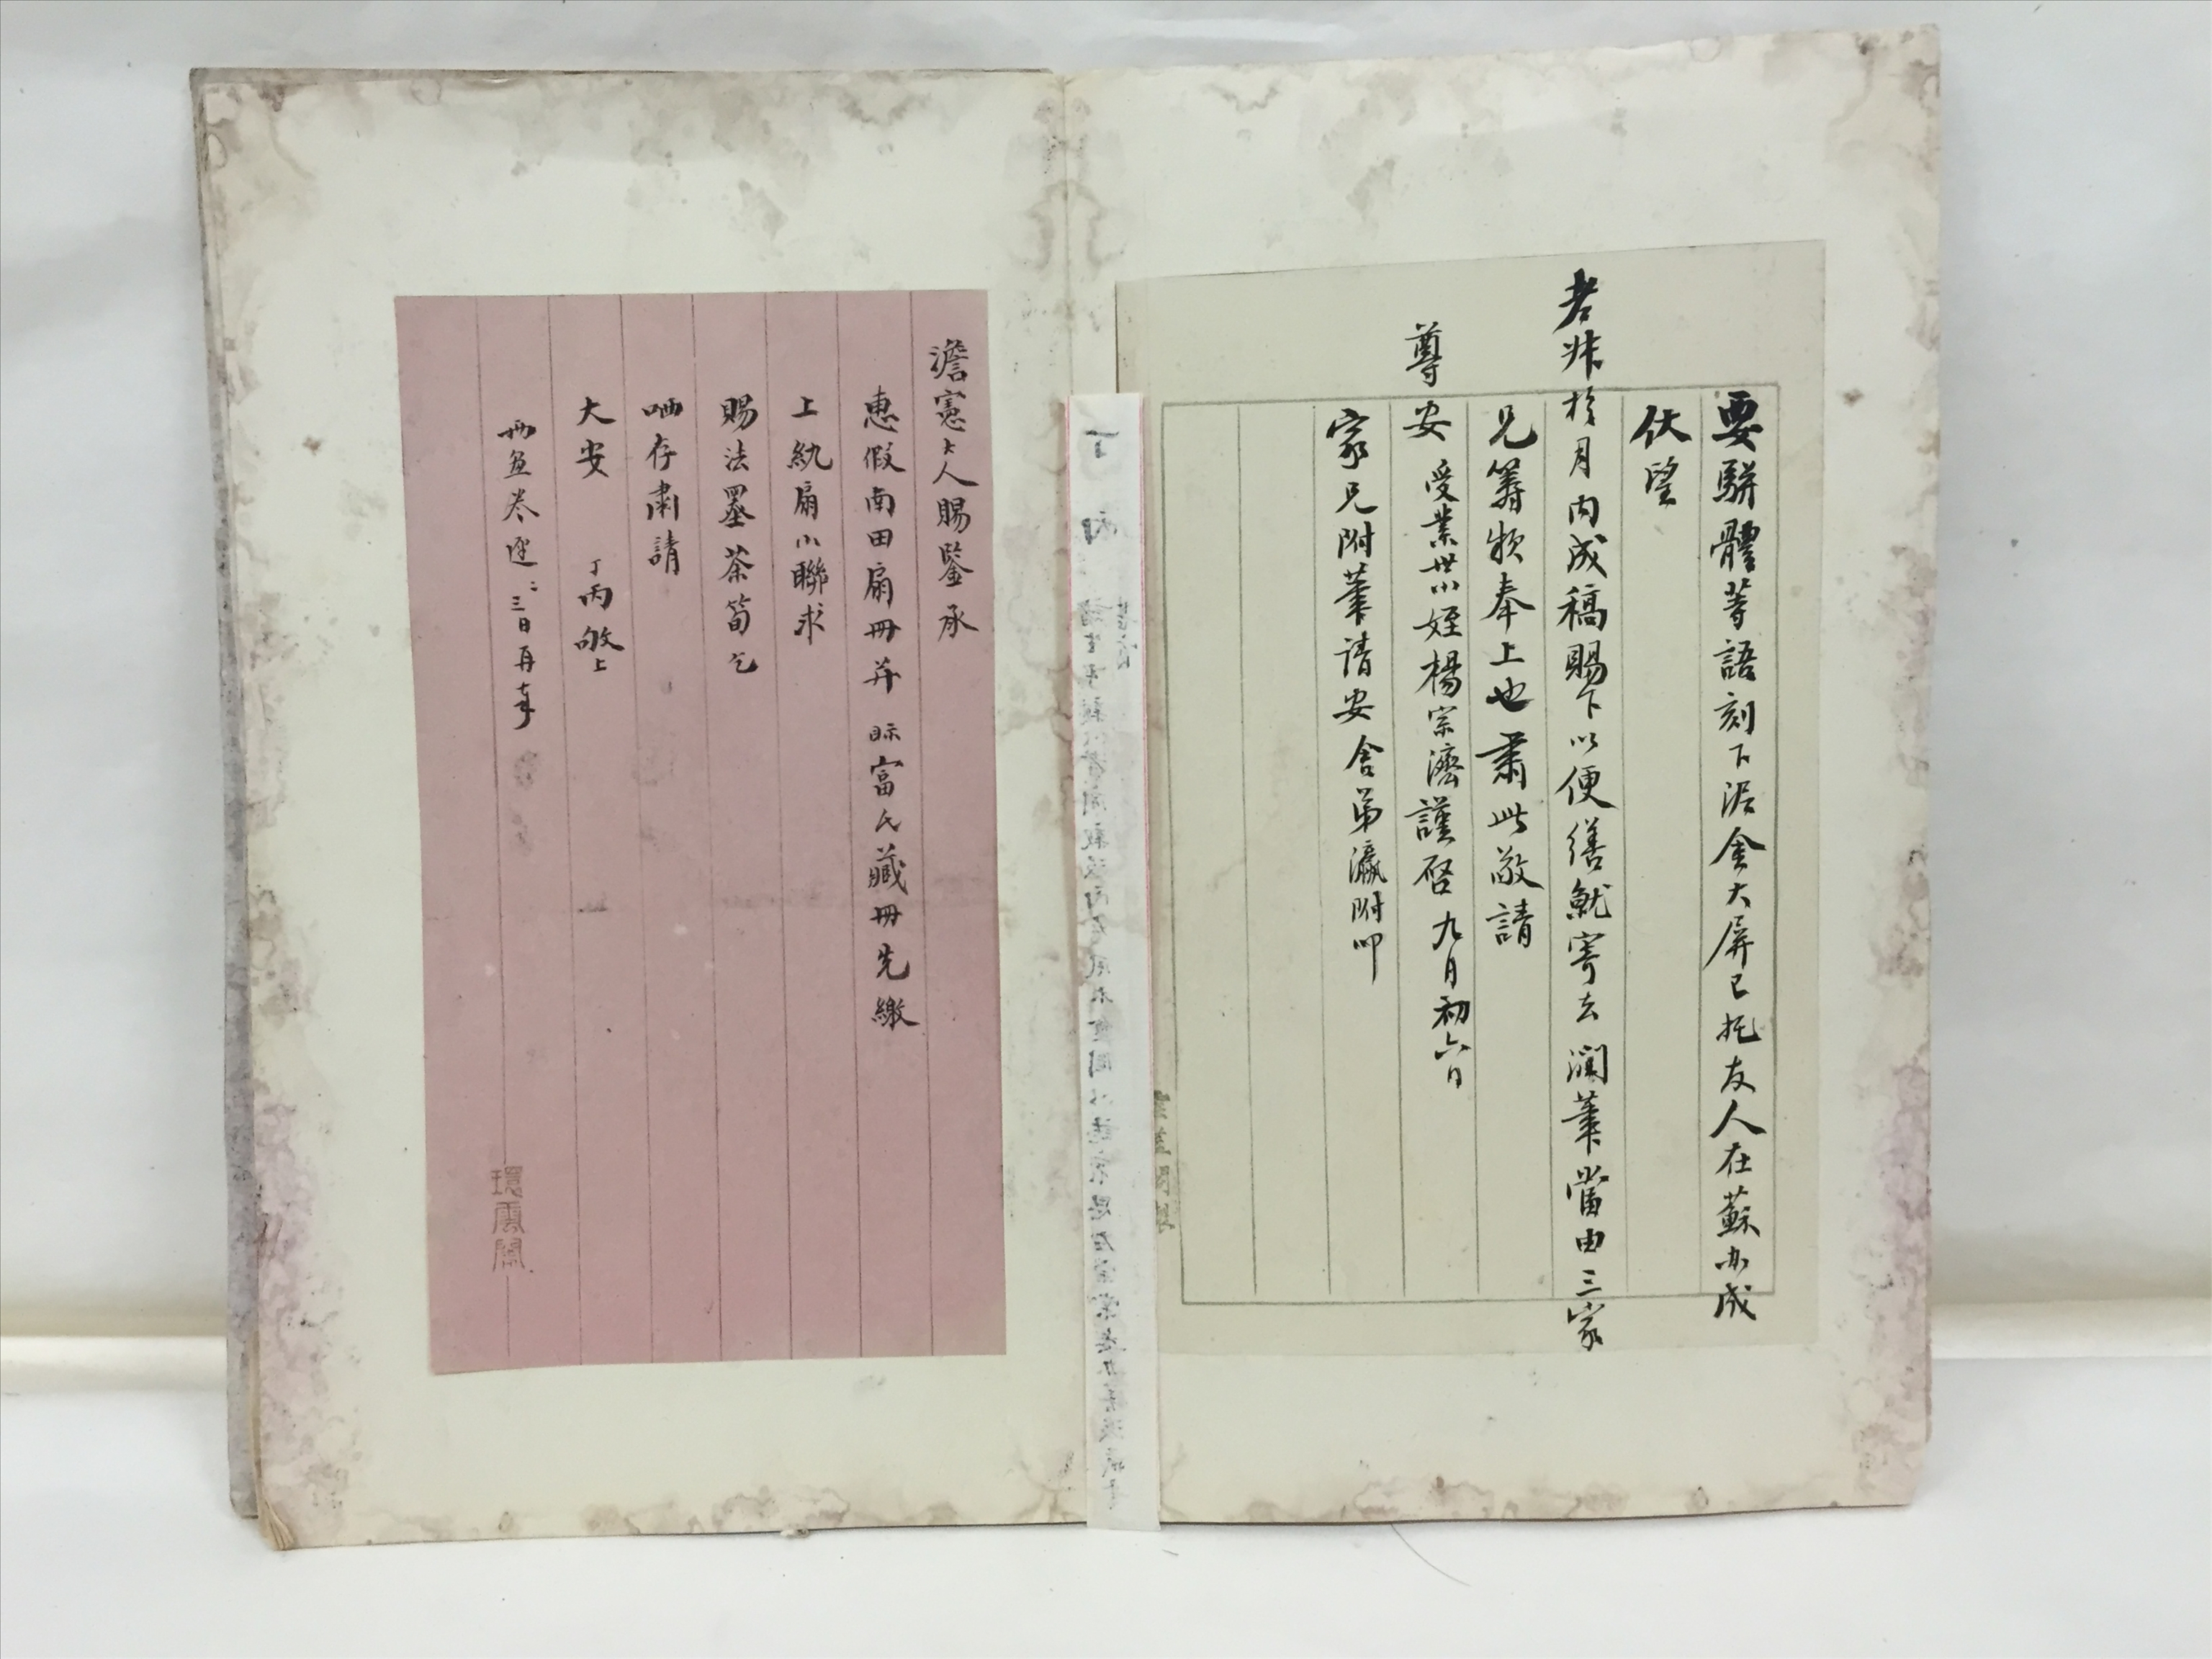 要駢體等語刻下泥金大屏已托友人在蘇办成
伏望
老叔於月内成稿賜下以便繕就寄去潤筆當由三家
兄籌牧奉上也肅此敬請
尊安 受業世小姪楊宗濟謹啓 九月初六日
家兄附筆請安 舍弟瀛附叩
丁丙
澹憲大人賜鑒承
惠假南田扇冊并 眎富氏藏冊先繳
上紈扇小聯求
賜法墨茶筍乞
哂存肅請
大安 丁丙敬上
冊 卷 三日再奉
環雲閣